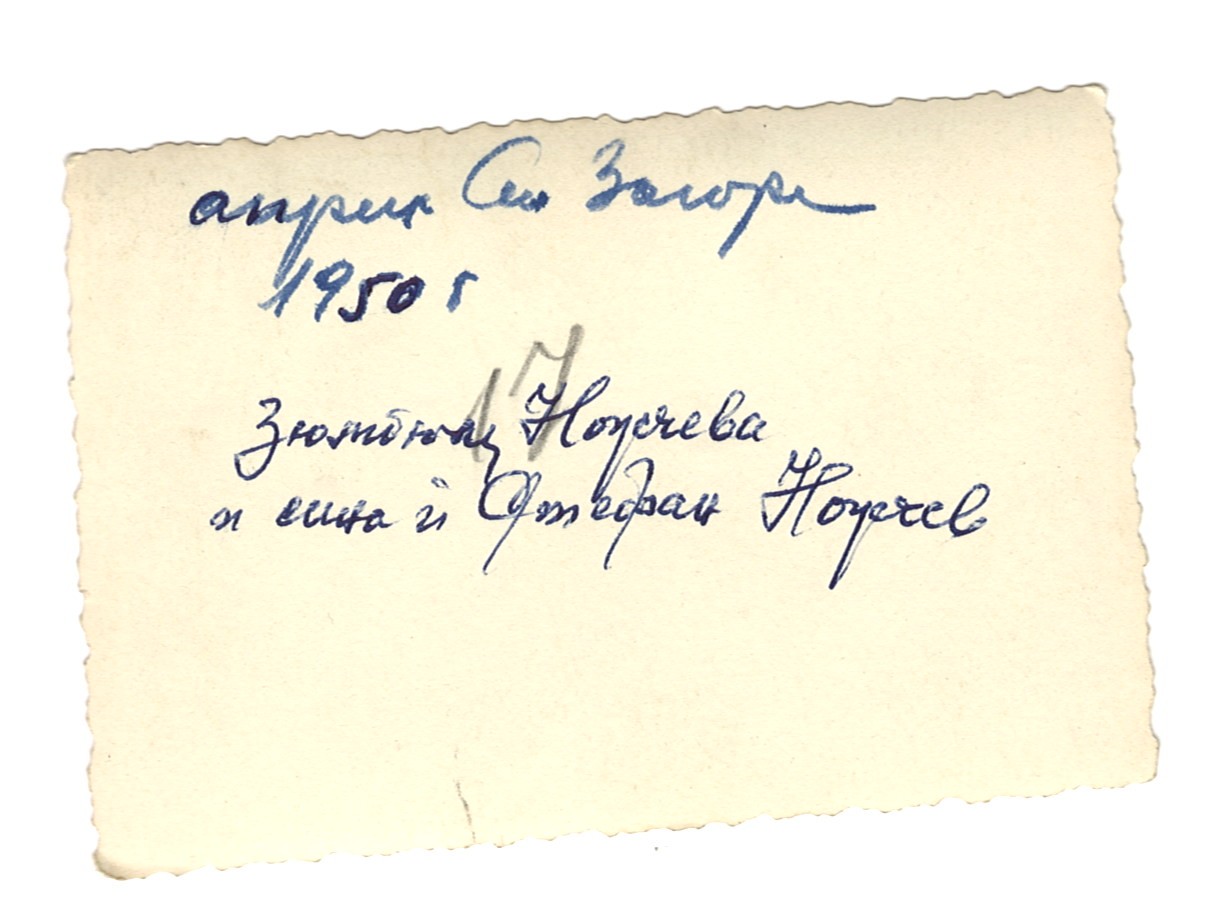 април Ст Загора
1950 г
17
Нойчева
и сина ѝ Стефан Нойчев